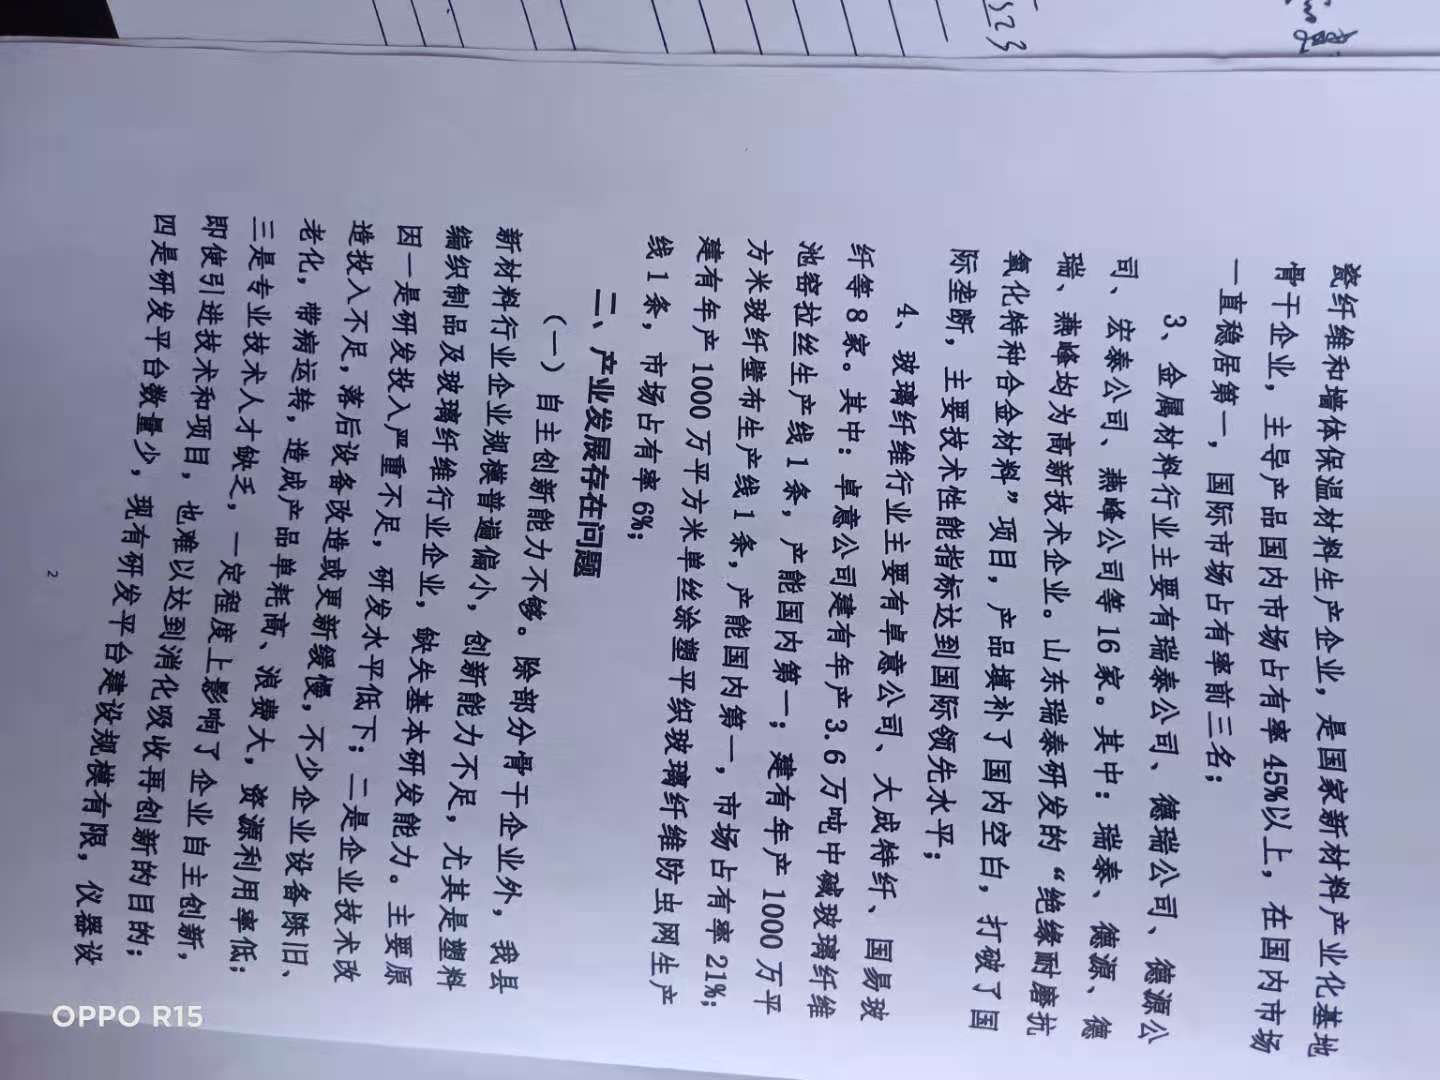 瓷纤维和墙体保温材料生产企业，是国家新材料产业化基地
骨干企业，主导产品国内市场占有率 45%以上，在国内市场
一直稳居第一，国际市场占有率前三名；
3、金属材料行业主要有瑞泰公司、德瑞公司、德源公
司、宏泰公司、燕峰公司等 16 家。其中：瑞泰、德源、德
瑞、燕峰均为高新技术企业。山东瑞泰研发的“绝缘耐磨抗
氧化特种合金材料”项目，产品填补了国内空白，打破了国
际垄断，主要技术性能指标达到国际领先水平；
4、玻璃纤维行业主要有卓意公司、大成特纤、国易玻
纤等 8 家。其中：卓意公司建有年产 3.6 万吨中碱玻璃纤维
池窑拉丝生产线 1 条，产能国内第一；建有年产 1000 万平
方米玻纤壁布生产线 1 条，产能国内第一，市场占有率 21%；
建有年产 1000 万平方米单丝涂塑平织玻璃纤维防虫网生产
线 1 条，市场占有率 6%；
二、产业发展存在问题
（一）自主创新能力不够。除部分骨干企业外，我县
新材料行业企业规模普遍偏小，创新能力不足，尤其是塑料
编织制品及玻璃纤维行业企业，缺失基本研发能力。主要原
因一是研发投入严重不足，研发水平低下；二是企业技术改
造投入不足，落后设备改造或更新缓慢，不少企业设备陈旧、
老化，带病运转，造成产品单耗高、浪费大，资源利用率低；
三是专业技术人才缺乏，一定程度上影响了企业自主创新，
即使引进技术和项目，也难以达到消化吸收再创新的目的；
四是研发平台数量少，现有研发平台建设规模有限，仪器设
2
OPPO R15